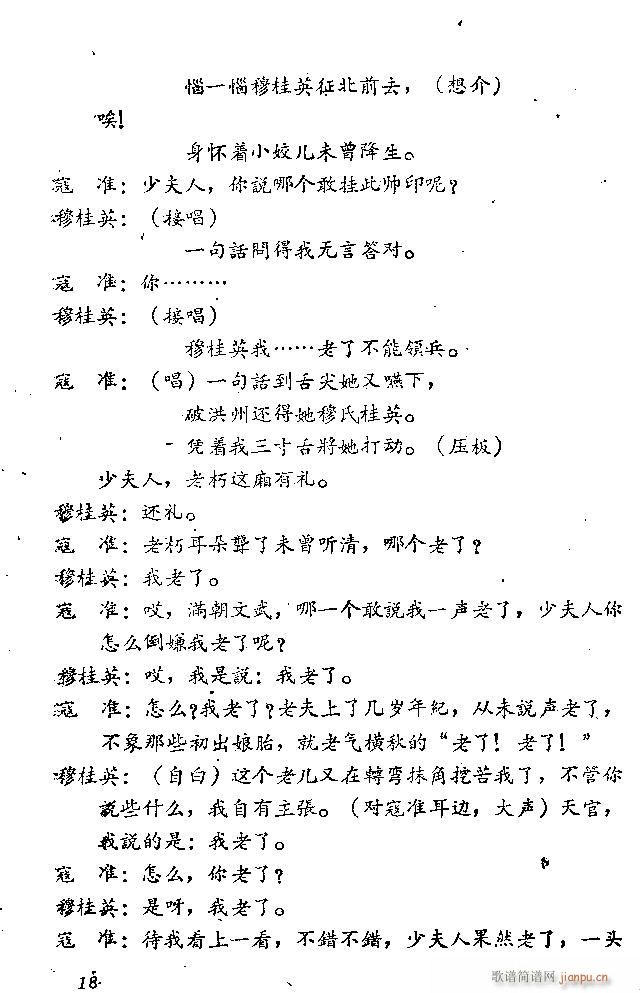 恼一恼穆桂英征北前去，（想介）
唉！
身怀着小姣儿未曾降生。
寇　准：少夫人，你說哪个敢挂此帅印呢？
穆桂英：（接唱）
一句話問得我无言答对。
寇　准：你………
穆桂英：（接唱）
穆桂英我……老了不能領兵。
寇　准：（唱）一句話到舌尖她又嚥下，
破洪州还得她穆氏桂英。
凭着我三寸舌將她打动。（压板）
少夫人，老朽这廂有礼。
穆桂英：还礼。
寇　准：老朽耳朵聾了未曾听清，哪个老了？
穆桂英：我老了。
寇　准：哎，滿朝文武，哪一个敢說我一声老了，少夫人你
怎么倒嫌我老了呢？
穆桂英：哎，我是說：我老了。
寇　准：怎么？我老了？老夫上了几岁年紀，从未說声老了，
不象那些初出娘胎，就老气横秋的“老了！老了！”
穆桂英：（自白）这个老儿又在轉弯抹角挖苦我了，不管你
說些什么，我自有主張。（对寇准耳边，大声）天官，
我說的是：我老了。
寇　准：怎么，你老了？
穆桂英：是呀，我老了。
寇　准：待我看上一看，不錯不錯，少夫人果然老了，一头
18
歌谱简谱网
jianpu.cn